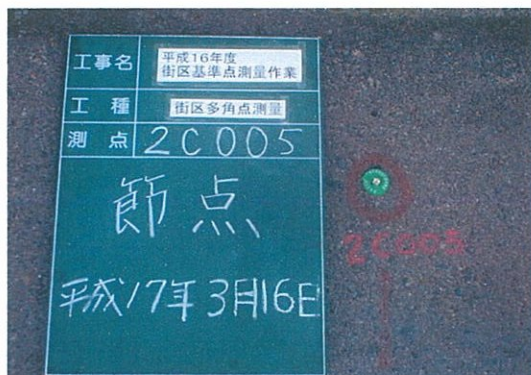 工事名
平成16年度
街区基準点測量作業
工種
街区多角点測量
測点
2C005
節点
平成17年3月16日
2C005